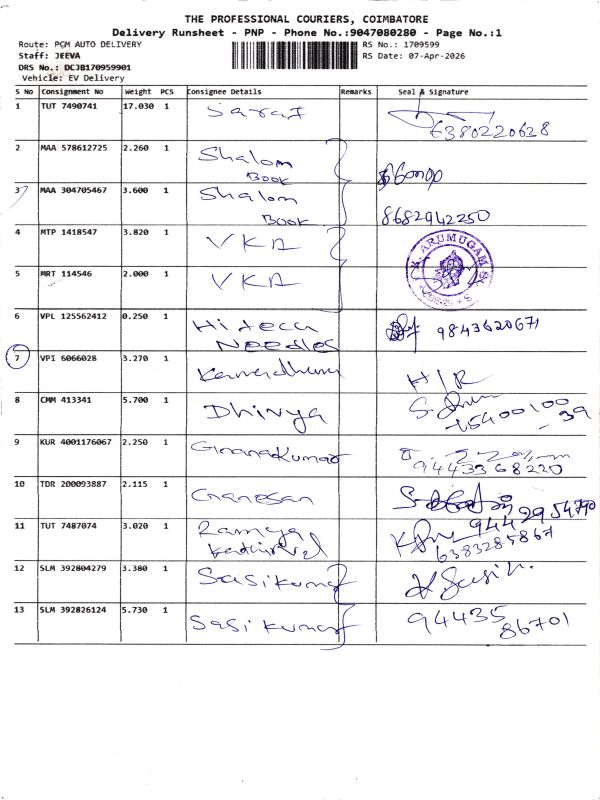 THE PROFESSIONAL COURIERS, COIMBATORE
Delivery Runsheet - PNP - Phone No.:9047080280 - Page No.:1
Route: PGM AUTO DELIVERY
RS No.: 1709599
Staff: JEEVA
RS Date: 07-Apr-2026
DRS No.: DCJB170959901
Vehicle: EV Delivery
S No Consignment No Weight PCS Consignee Details Remarks Seal & Signature
1 TUT 7490741 17.030 1
6380220628
2 MAA 578612725 2.260 1 Shalom
Book
3 MAA 304705467 3.600 1 Shalom
Book 8682942250
4 MTP 1418547 3.820 1 VKA
K. ARUMUGAM
5 MRT 114546 2.000 1 VKA
6 VPL 125562412 0.250 1 Hitech
Needles 9843620671
7 VPI 6066028 3.270 1
H/R
8 CMM 413341 5.700 1 Dhivya
9 KUR 4001176067 2.250 1 Gnanakumar
9443368220
10 TDR 200093887 2.115 1 Ganesan
11 TUT 7487074 3.020 1 Ramya
6383285867
12 SLM 392804279 3.380 1 Sasikumar
13 SLM 392826124 5.730 1 Sasikumar 94435
86701